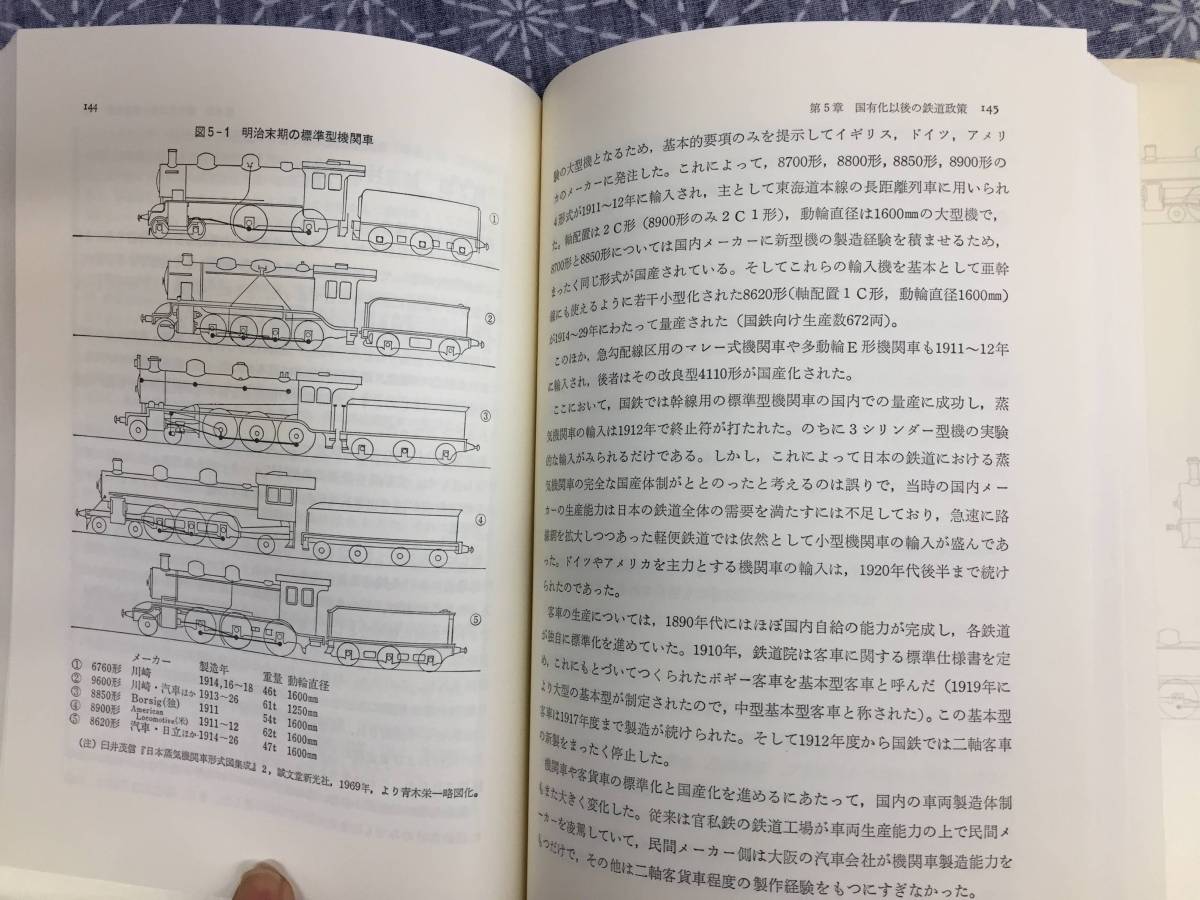 144
図5-1 明治末期の標準型機関車
①
②
③
④
⑤
メーカー 製造年 重量 動輪直径
① 6760形 川崎 1914,16~18 46t 1600mm
② 9600形 川崎・汽車ほか 1913~26 61t 1250mm
③ 8850形 Borsig(独) 1911 54t 1600mm
④ 8900形 American Locomotive(米) 1911~12 62t 1600mm
⑤ 8620形 汽車・日立ほか 1914~26 47t 1600mm
(注) 臼井茂信『日本蒸気機関車形式図集成』2,誠文堂新光社,1969年,より青木栄一略図化。
第5章 国有化以後の鉄道政策 145
験の大型機となるため,基本的要項のみを提示してイギリス,ドイツ,アメリ
カのメーカーに発注した。これによって,8700形,8800形,8850形,8900形の
4形式が1911~12年に輸入され,主として東海道本線の長距離列車に用いられ
た。軸配置は2C形(8900形のみ2C1形),動輪直径は1600mmの大型機で,
8700形と8850形については国内メーカーに新型機の製造経験を積ませるため,
まったく同じ形式が国産されている。そしてこれらの輸入機を基本として亜幹
線にも使えるように若干小型化された8620形(軸配置1C形,動輪直径1600mm)
が1914~29年にわたって量産された(国鉄向け生産数672両)。
このほか,急勾配線区用のマレー式機関車や多動輪E形機関車も1911~12年
に輸入され,後者はその改良型4110形が国産化された。
ここにおいて,国鉄では幹線用の標準型機関車の国内での量産に成功し,蒸
気機関車の輸入は1912年で終止符が打たれた。のちに3シリンダー型機の実験
的な輸入がみられるだけである。しかし,これによって日本の鉄道における蒸
気機関車の完全な国産体制がととのったと考えるのは誤りで,当時の国内メー
カーの生産能力は日本の鉄道全体の需要を満たすには不足しており,急速に路
線網を拡大しつつあった軽便鉄道では依然として小型機関車の輸入が盛んであ
った。ドイツやアメリカを主力とする機関車の輸入は,1920年代後半まで続け
られたのであった。
客車の生産については,1890年代にはほぼ国内自給の能力が完成し,各鉄道
が独自に標準化を進めていた。1910年,鉄道院は客車に関する標準仕様書を定
め,これにもとづいてつくられたボギー客車を基本型客車と呼んだ(1919年に
より大型の基本型が制定されたので,中型基本型客車と称された)。この基本型
客車は1917年度まで製造が続けられた。そして1912年度から国鉄では二軸客車
の新製をまったく停止した。
機関車や客貨車の標準化と国産化を進めるにあたって,国内の車両製造体制
もまた大きく変化した。従来は官私鉄の鉄道工場が車両生産能力の上で民間メ
ーカーを凌駕していて,民間メーカー側は大阪の汽車会社が機関車製造能力を
もつだけで,その他は二軸客貨車程度の製作経験をもつにすぎなかった。